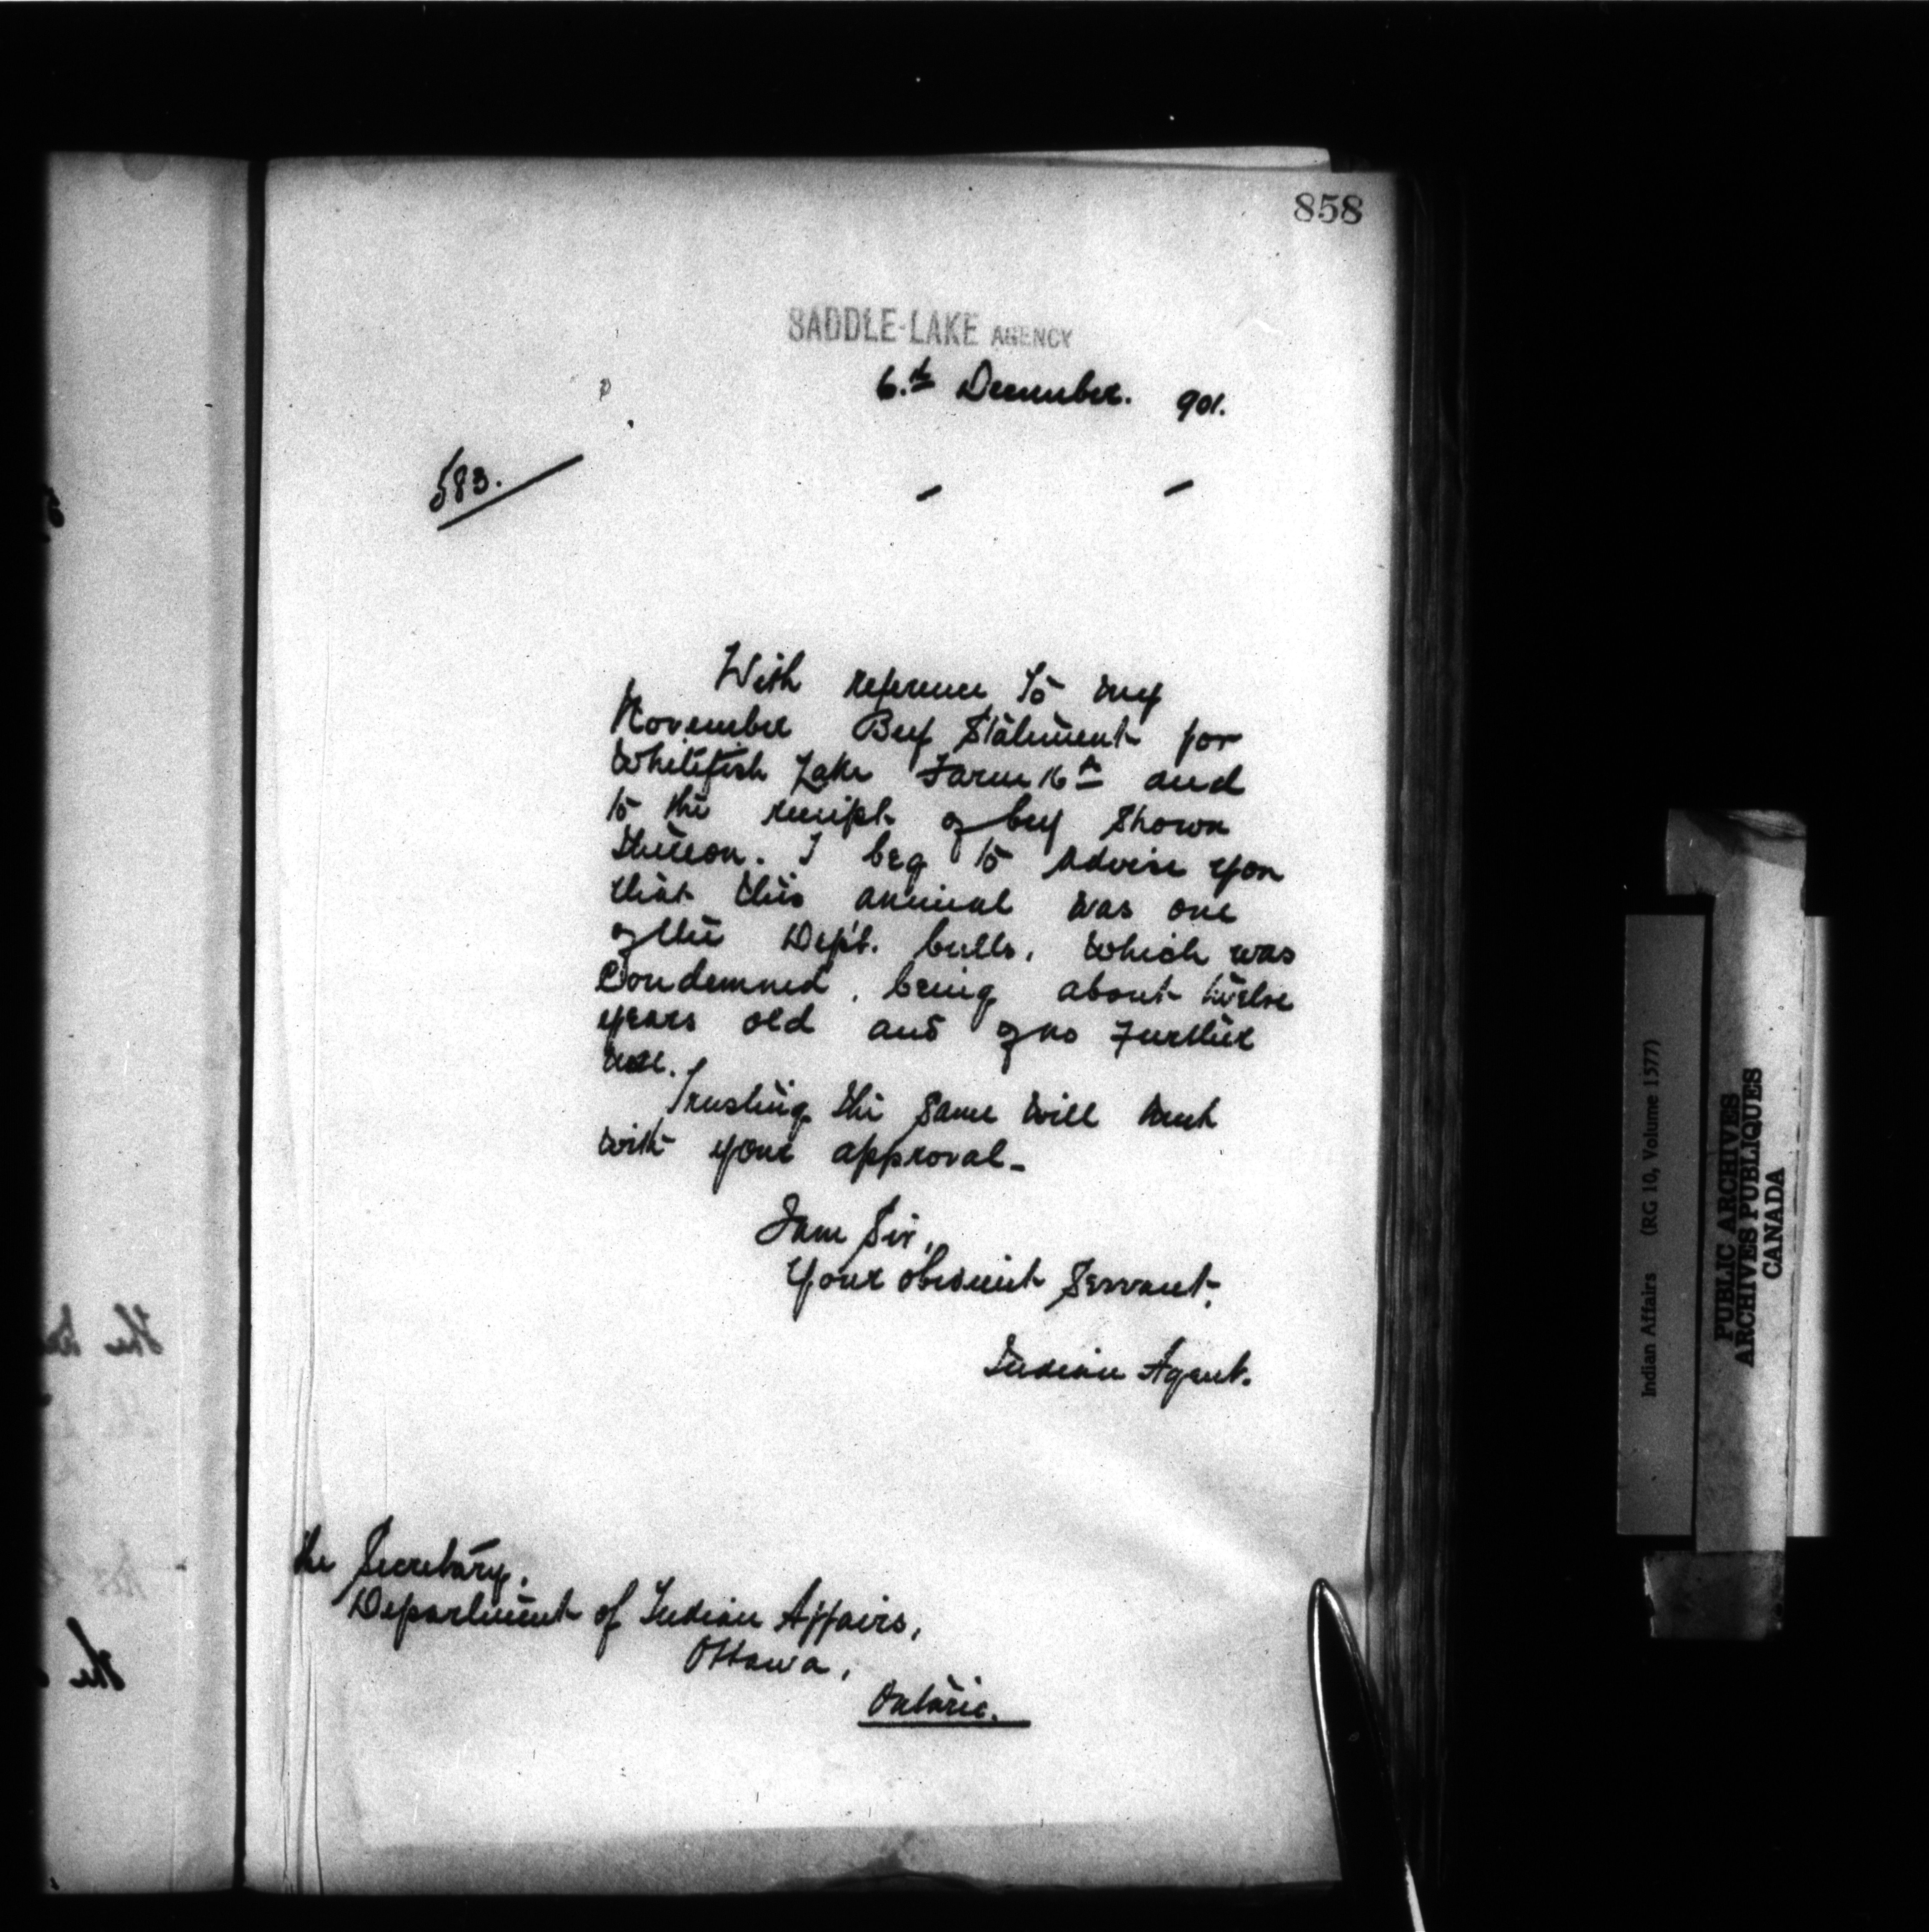 858
SADDLE-LAKE AGENCY
6.th December. 901.
583.
With reference to my
November Beef Statement for
Whitefish Lake Farm 16A and
to the receipt of beef shown
thereon. I beg to advise you
that this animal was one
of the Dept. bulls, which was
Condemned, being about twelve
years old and of no further
use.
Trusting the same will meet
with your approval -
I am Sir,
Your obedient Servant.
Indian Agent.
The Secretary,
Department of Indian Affairs,
Ottawa,
Ontario.
Indian Affairs (RG 10, Volume 1577)
PUBLIC ARCHIVES
ARCHIVES PUBLIQUES
CANADA